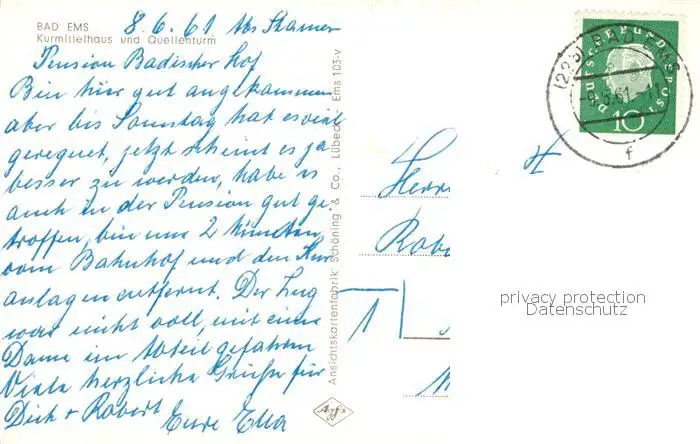 BAD EMS
Kurmittelhaus und Quellenturm
8.6.61
Pension Badischer Hof
Bin hier gut angekommen
aber bis Sonntag hat es viel
geregnet, jetzt scheint es ja
besser zu werden, habe es
auch in der Pension gut ge-
troffen, bin nur 2 Minuten
vom Bahnhof und den Kur
anlagen entfernt. Der Zug
war nicht voll, mit einer
Dame im Abteil gefahren
Viele herzliche Grüße für
Dich + Robert Eure Ella
Ansichtskartenfabrik Schöning & Co., Lübeck Ems 103-v
Agfa
Herrn
Robe
DEUTSCHE BUNDESPOST
10
BAD EMS
f
privacy protection
Datenschutz